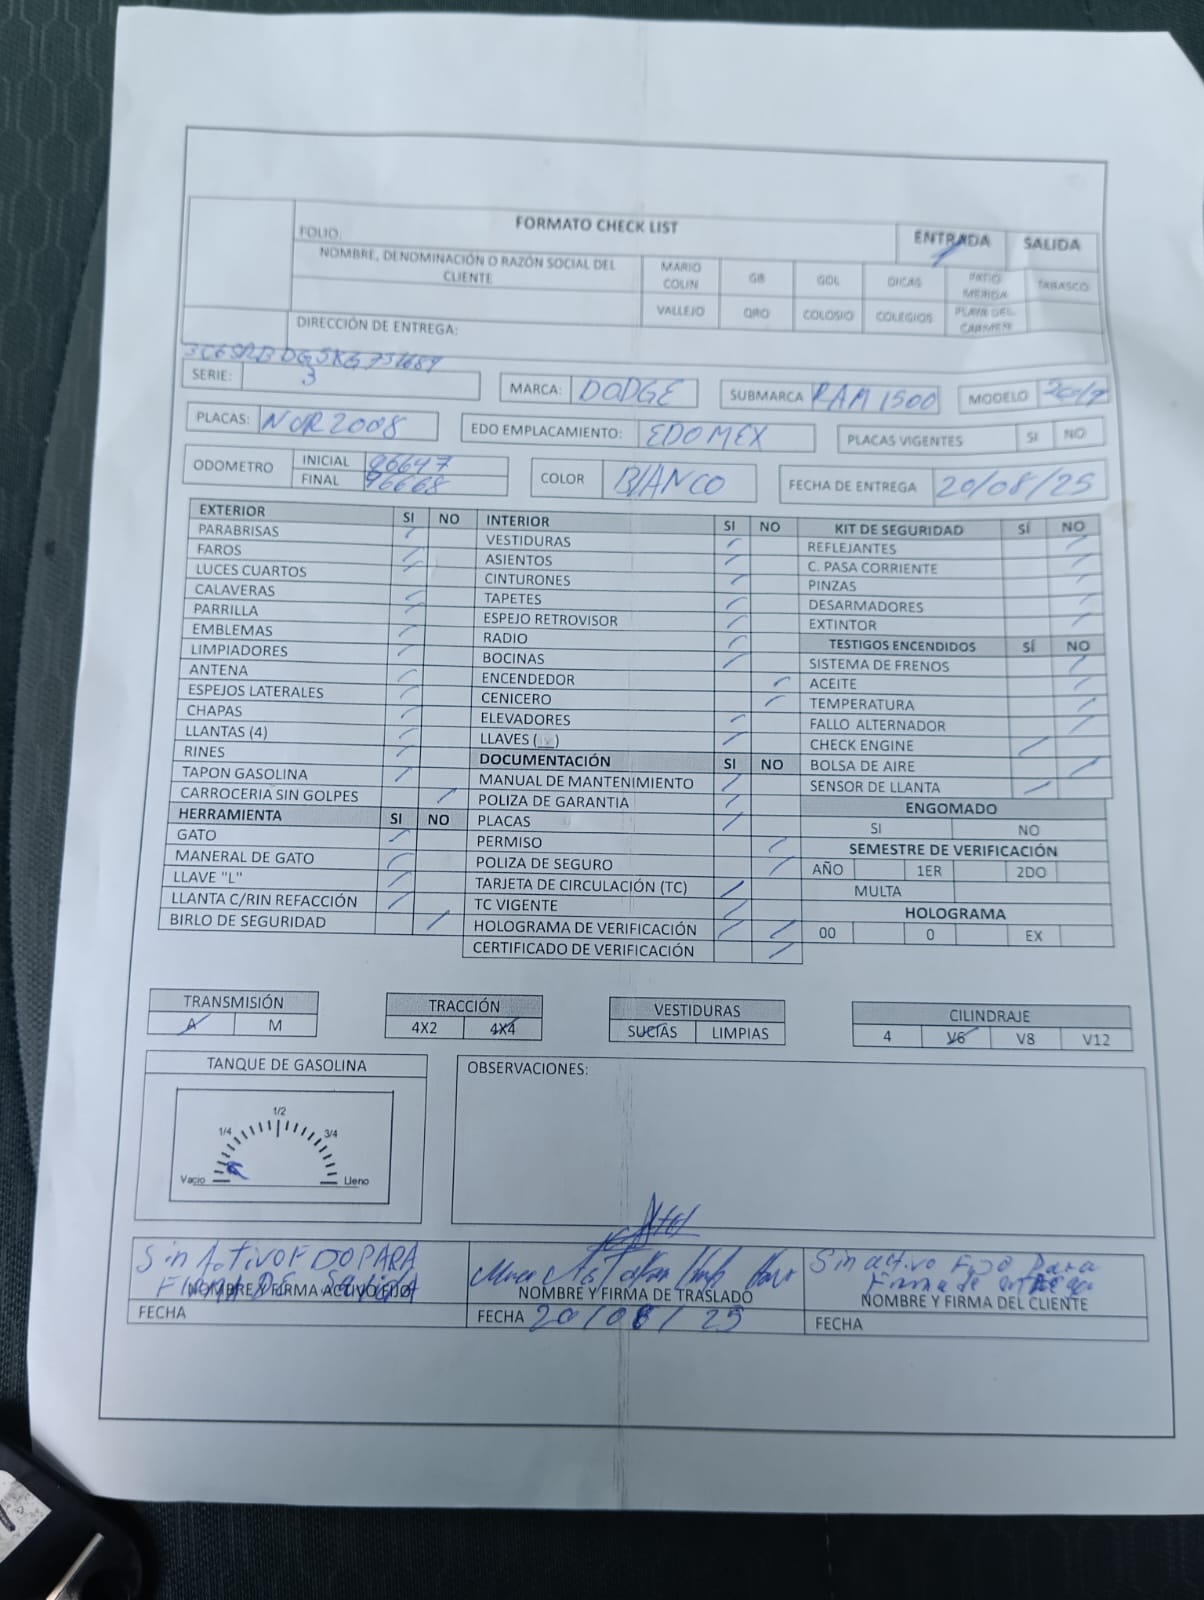 FORMATO CHECK LIST
FOLIO:
ENTRADA SALIDA
NOMBRE, DENOMINACIÓN O RAZÓN SOCIAL DEL CLIENTE
MARIO COLIN GB GDL DICAS PATIO MERIDA TABASCO
VALLEJO QRO COLOSIO COLEGIOS PLAYA DEL CARMEN
DIRECCIÓN DE ENTREGA:
SERIE: 3
MARCA: DODGE SUBMARCA RAM 1500 MODELO 2019
PLACAS: NUR2008 EDO EMPLACAMIENTO: EDOMEX PLACAS VIGENTES SI NO
ODOMETRO INICIAL 96647
FINAL 96668
COLOR BlANCO FECHA DE ENTREGA 20/08/25
EXTERIOR SI NO
PARABRISAS
FAROS
LUCES CUARTOS
CALAVERAS
PARRILLA
EMBLEMAS
LIMPIADORES
ANTENA
ESPEJOS LATERALES
CHAPAS
LLANTAS (4)
RINES
TAPON GASOLINA
CARROCERIA SIN GOLPES
HERRAMIENTA SI NO
GATO
MANERAL DE GATO
LLAVE "L"
LLANTA C/RIN REFACCIÓN
BIRLO DE SEGURIDAD
INTERIOR SI NO
VESTIDURAS
ASIENTOS
CINTURONES
TAPETES
ESPEJO RETROVISOR
RADIO
BOCINAS
ENCENDEDOR
CENICERO
ELEVADORES
LLAVES (__)
DOCUMENTACIÓN SI NO
MANUAL DE MANTENIMIENTO
POLIZA DE GARANTIA
PLACAS
PERMISO
POLIZA DE SEGURO
TARJETA DE CIRCULACIÓN (TC)
TC VIGENTE
HOLOGRAMA DE VERIFICACIÓN
CERTIFICADO DE VERIFICACIÓN
KIT DE SEGURIDAD SÍ NO
REFLEJANTES
C. PASA CORRIENTE
PINZAS
DESARMADORES
EXTINTOR
TESTIGOS ENCENDIDOS SÍ NO
SISTEMA DE FRENOS
ACEITE
TEMPERATURA
FALLO ALTERNADOR
CHECK ENGINE
BOLSA DE AIRE
SENSOR DE LLANTA
ENGOMADO
SI NO
SEMESTRE DE VERIFICACIÓN
AÑO 1ER 2DO
MULTA
HOLOGRAMA
00 0 EX
TRANSMISIÓN
A M
TRACCIÓN
4X2 4X4
VESTIDURAS
SUCIAS LIMPIAS
CILINDRAJE
4 V6 V8 V12
TANQUE DE GASOLINA
1/4 1/2 3/4
Vacio Lleno
OBSERVACIONES:
Sin Activo F DO PARA
NOMBRE Y FIRMA ACTIVO FIJO
FECHA
NOMBRE Y FIRMA DE TRASLADO
FECHA 20/08/25
Sin activo Fijo Para
Firma de entrega
NOMBRE Y FIRMA DEL CLIENTE
FECHA